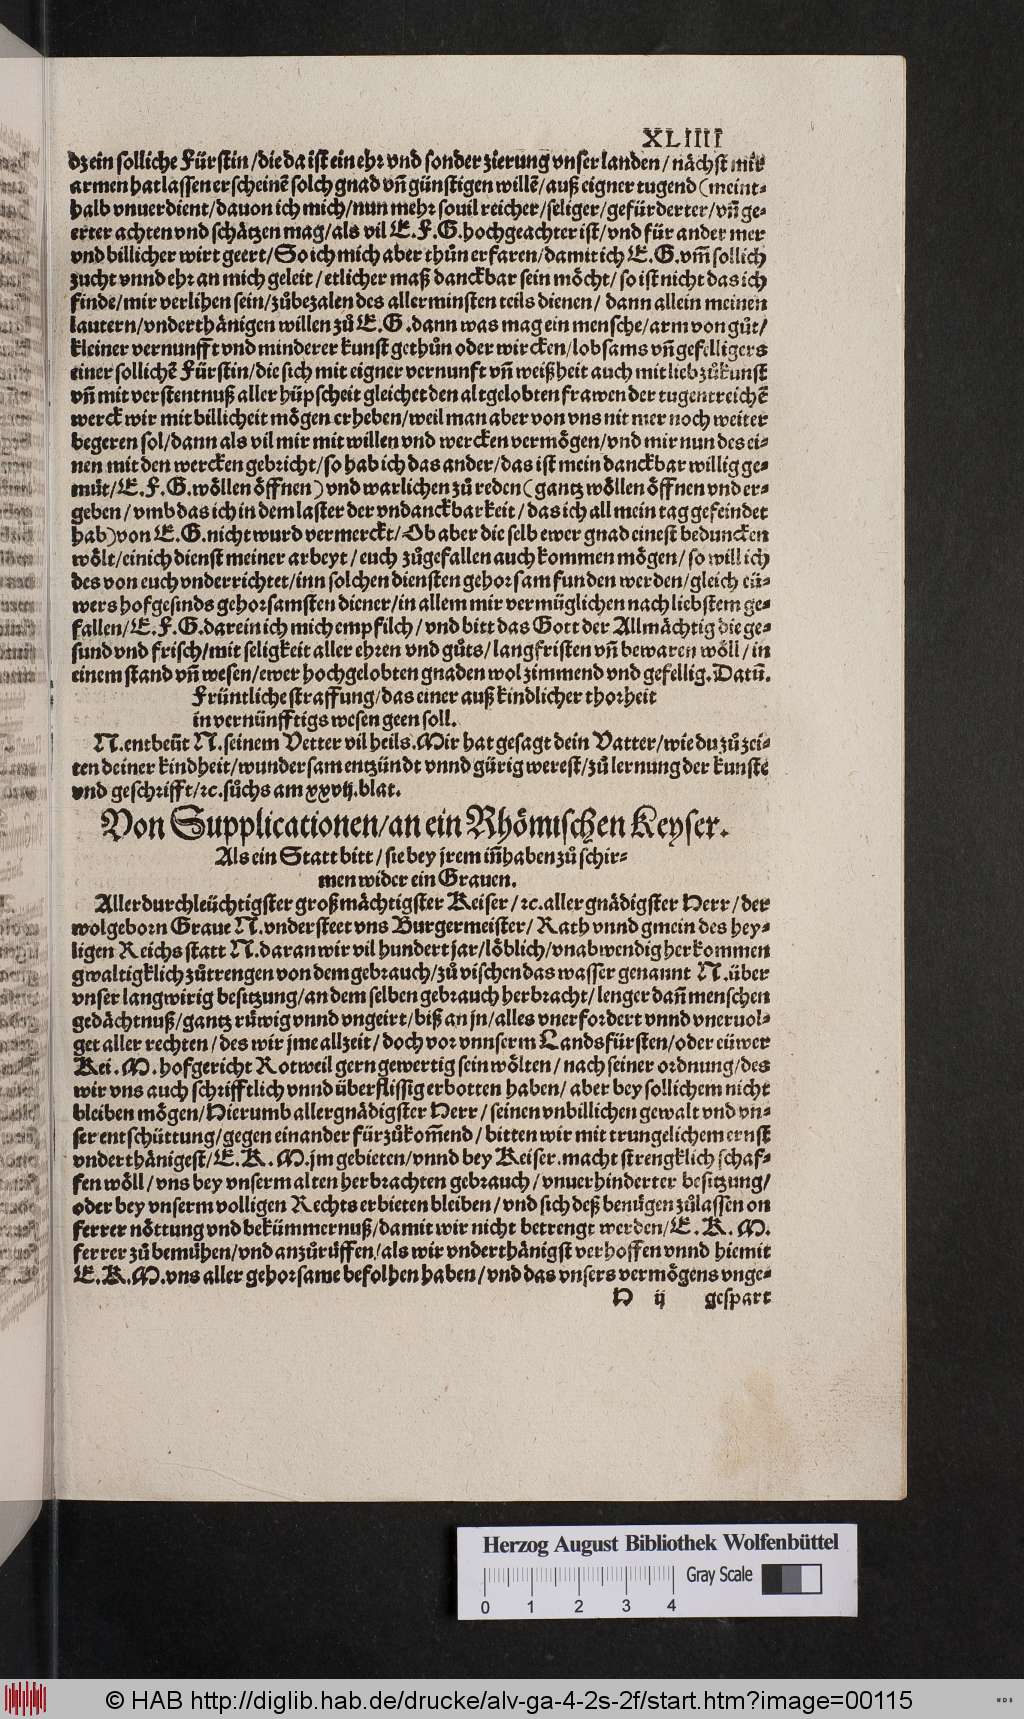 XLIIII
dz ein solliche Fürstin / die da ist ein ehr vnd sonder zierung vnser landen / nächst mir
armen hat lassen erscheinē solch gnad vñ günstigen willē / auß eigner tugend (meint⸗
halb vnuerdient / dauon ich mich / nun mehr souil reicher / seliger / gefürderter / vñ ge⸗
erter achten vnd schätzen mag / als vil E. F. G. hochgeachter ist / vnd für ander mer
vnd billicher wirt geert / So ich mich aber thůn erfaren / damit ich E. G. vm̃ sollich
zucht vnnd ehr an mich geleit / etlicher maß danckbar sein möcht / so ist nicht das ich
finde / mir verlihen sein / zůbezalen des aller minsten teils dienen / dann allein meinen
lautern / vnderthänigen willen zů E. G. dann was mag ein mensche / arm von gůt /
kleiner vernunfft vnd minderer kunst gethůn oder wircken / lobsams vñ gefelligers
einer sollichē Fürstin / die sich mit eigner vernunft vñ weißheit auch mit lieb zů kunst
vñ mit verstentnuß aller hüpscheit gleichet den alt gelobten frawen der tugentreichē
werck wir mit billicheit mögen erheben / weil man aber von vns nit mer noch weiter
begeren sol / dann als vil mir mit willen vnd wercken vermögen / vnd mir nun des ei⸗
nen mit den wercken gebricht / so hab ich das ander / das ist mein danckbar willig ge⸗
müt / E. F. G. wöllen öffnen) vnd warlichen zů reden (gantz wöllen öffnen vnd er⸗
geben / vmb das ich in dem laster der vndanckbarkeit / das ich all mein tag gefeindet
hab) von E. G. nicht wurd vermerckt / Ob aber die selb ewer gnad einest beduncken
wölt / einich dienst meiner arbeyt / euch zůgefallen auch kommen mögen / so will ich
des von euch vnderrichtet / inn solchen diensten gehorsam funden werden / gleich eü⸗
wers hofgesinds gehorsamsten diener / in allem mir vermüglichen nach liebstem ge⸗
fallen / E. F. G. darein ich mich empfilch / vnd bitt das Gott der Allmächtig die ge⸗
sund vnd frisch / mit seligkeit aller ehren vnd gůts / langfristen vñ bewaren wöll / in
einem stand vñ wesen / ewer hochgelobten gnaden wol zimmend vnd gefellig. Datũ.
Früntliche straffung / das einer auß kindlicher thorheit
in vernünfftigs wesen geen soll.
N. entbeüt N. seinem Vetter vil heils. Mir hat gesagt dein Vatter / wie du zů zei⸗
ten deiner kindheit / wundersam entzündt vnnd gürig werest / zů lernung der kunste
vnd geschrifft / ꝛc. sůchs am xxvij. blat.
Von Supplicationen / an ein Rhömischen Keyser.
Als ein Statt bitt / sie bey jrem iñhaben zů schir⸗
men wider ein Grauen.
Allerdurchleüchtigster großmächtigster Keiser / ꝛc. aller gnädigster Herr / der
wolgeborn Graue N. vndersteet vns Burgermeister / Rath vnnd gmein des hey⸗
ligen Reichs statt N. daran wir vil hundert jar / löblich / vnabwendig herkommen
gwaltigklich zůtrengen von dem gebrauch / zů vischen das wasser genannt N. über
vnser langwirig besitzung / an dem selben gebrauch herbracht / lenger dañ menschen
gedächtnuß / gantz rüwig vnnd vngeirt / biß an jn / alles vnerfordert vnnd vneruol⸗
get aller rechten / des wir jme allzeit / doch vor vnnserm Landsfürsten / oder eüwer
Kei. M. hofgericht Rotweil gern gewertig sein wölten / nach seiner ordnung / des
wir vns auch schrifftlich vnnd überflissig erbotten haben / aber bey sollichem nicht
bleiben mögen / Hierumb allergnädigster Herr / seinen vnbillichen gewalt vnd vn⸗
ser entschüttung / gegen einander fürzůkom̃end / bitten wir mit trungelichem ernst
vnderthänigest / E. K. M. jm gebieten / vnnd bey Keiser. macht strengklich schaf⸗
fen wöll / vns bey vnserm alten herbrachten gebrauch / vnuerhinderter besitzung /
oder bey vnserm volligen Rechts erbieten bleiben / vnd sich deß benügen zůlassen on
ferrer nöttung vnd bekümmernuß / damit wir nicht betrengt werden / E. K. M.
ferrer zů bemühen / vnd anzůrüffen / als wir vnderthänigst verhoffen vnnd hiemit
E. K. M. vns aller gehorsame befolhen haben / vnd das vnsers vermögens vnge⸗
H ij gespart
Herzog August Bibliothek Wolfenbüttel
Gray Scale
0 1 2 3 4
© HAB http://diglib.hab.de/drucke/alv-ga-4-2s-2f/start.htm?image=00115
WDB